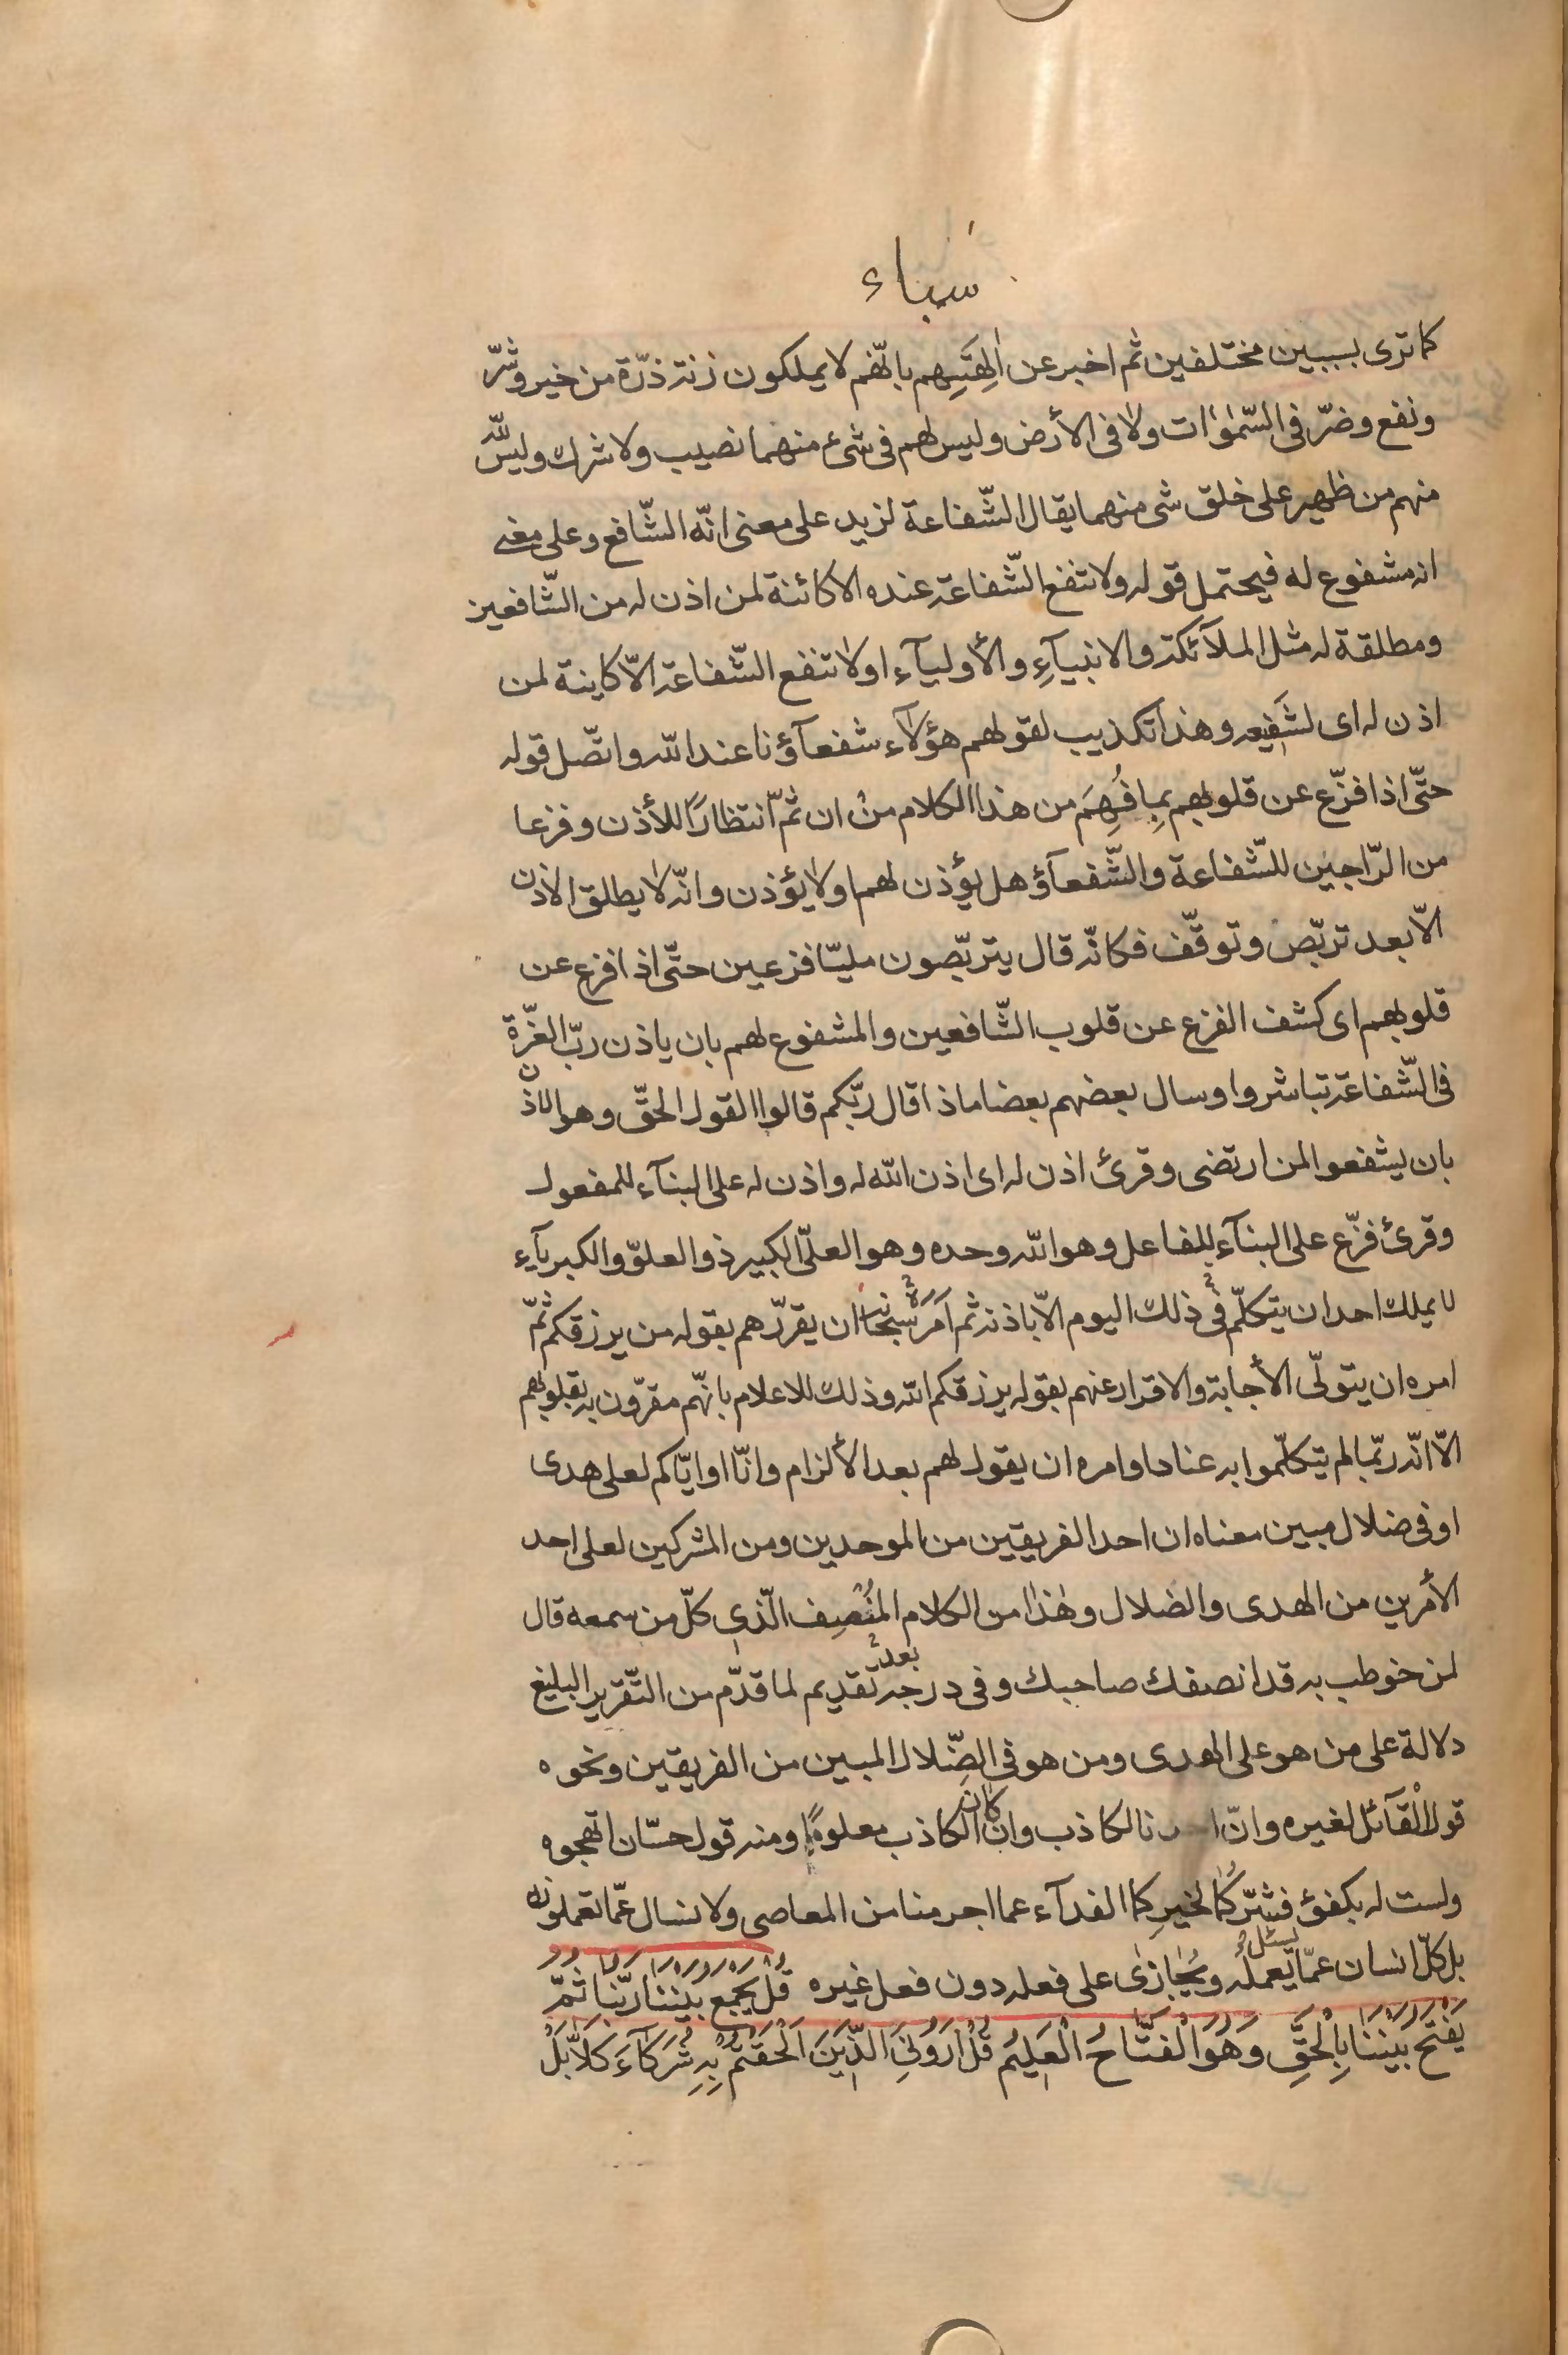 سباء
كما ترى بسببين مختلفين ثم اخبر عن اٰلِهَتِهِم بانّهم لا يملكون زنة ذرّة من خير وشرّ
ونفع وضرّ فى السّمٰوات ولا فى الأرض وليس لهم فى شىء منهما نصيب ولا شرك وليس للّه
منهم من ظهير على خلق شى منهما يقال الشّفاعة لزيد على معنى انّه الشّافع وعلى معنى
انه مشفوع له فيحتمل قوله ولا تنفع الشّفاعة عنده الا كائنة لمن اذن له من الشّافعين
ومطلقة له مثل الملآئكة والانبيآءِ والأوليآءِ اولا تنفع الشّفاعة الّا كاينة لمن
اذن له اى لشَفِيعه وهذا تكذيب لقولهم هؤلآء شفعآؤنا عند اللّه واتّصل قوله
حتّى اذا فزّع عن قلوبهم بِمِا فُهِمَ من هذا الكلام منْ ان ثَمّ انتظارًا للأذن وفزعا
من الرّاجين للشّفاعة والشّفعآؤ هل يؤذن لهم اولا يؤذن وانّه لا يطلق الاذن
الّا بعد تربّص وتوقّف فكانّه قال يتربّصون مليّا فزعين حتّى اذا فزع عن
قلوبهم اى كشف الفزع عن قلوب الشّافعين والمشفوع لهم بان ياذن ربّ العزّة
فى الشّفاعة تباشروا وسال بعضهم بعضا ماذا قال ربّكم قالوا القول الحقّ وهو الاذن
بان يشفعوا لمن ارتضى وقرئ اذن له اى اذن اللّه له واذن له على البنآء للمفعول
وقرئ فزّع على البنآء للفاعل وهو اللّه وحده وهو العلّى الكبير ذو العلوّ والكبريآءِ
لا يملك احد ان يتكلّم فى ذلك اليوم الّا باذنه ثم اَمَرَهُ سُبحانه ان يقرّرهم بقوله من يرزقكم ثمّ
امره ان يتولّى الأجابة والاقرار عنهم بقوله يرزقكم اللّه وذلك للاعلام بانّهم مقرّون به بقلوبهم
الّا انّه ربّما لم يتكلّموا به عنادا وامره ان يقول لهم بعد الألزام وانّا او ايّاكم لعلى هدى
او فى ضلال مبين معناه ان احد الفريقين من الموحدين ومن المشركين لعلى احد
الأمرين من الهدى والضلال وهٰذا من الكلام المُنْصِف الّذى كلّ من سمعه قال
لمن خوطب به قد انصفك صاحبك وفى درجة بعد تقديم لما قدّم من التّقرير البليغ
دلالة على من هو على الهدى ومن هو فى الضّلال المبين من الفريقين ونحوه
قول الْقآئل لغيره وانّ احدنا لكاذب وان كان الكاذب معلومًا ومنه قول حسّان اتهجوه
ولست له بكفؤ فشرّكُما لخيرِكما الفدآء عما اجرمنا من المعاصى ولا نسال عمّا تعملونه
بل كلّ انسان يسئل عمّا يعمله ويُجازٰى على فعله دون فعل غيره قُلْ يَجْمَعُ بَيْنَنَا رَبُّنَا ثُمَّ
يَفْتَحُ بَيْنَنَا بِالْحَقِّ وَهُوَ الْفَتَّاحُ الْعَلِيمُ قُلْ اَرُونِىَ الَّذِينَ اَلْحَقْتُمْ بِهِ شُرَكَآءَ كَلاَّ بَلْ